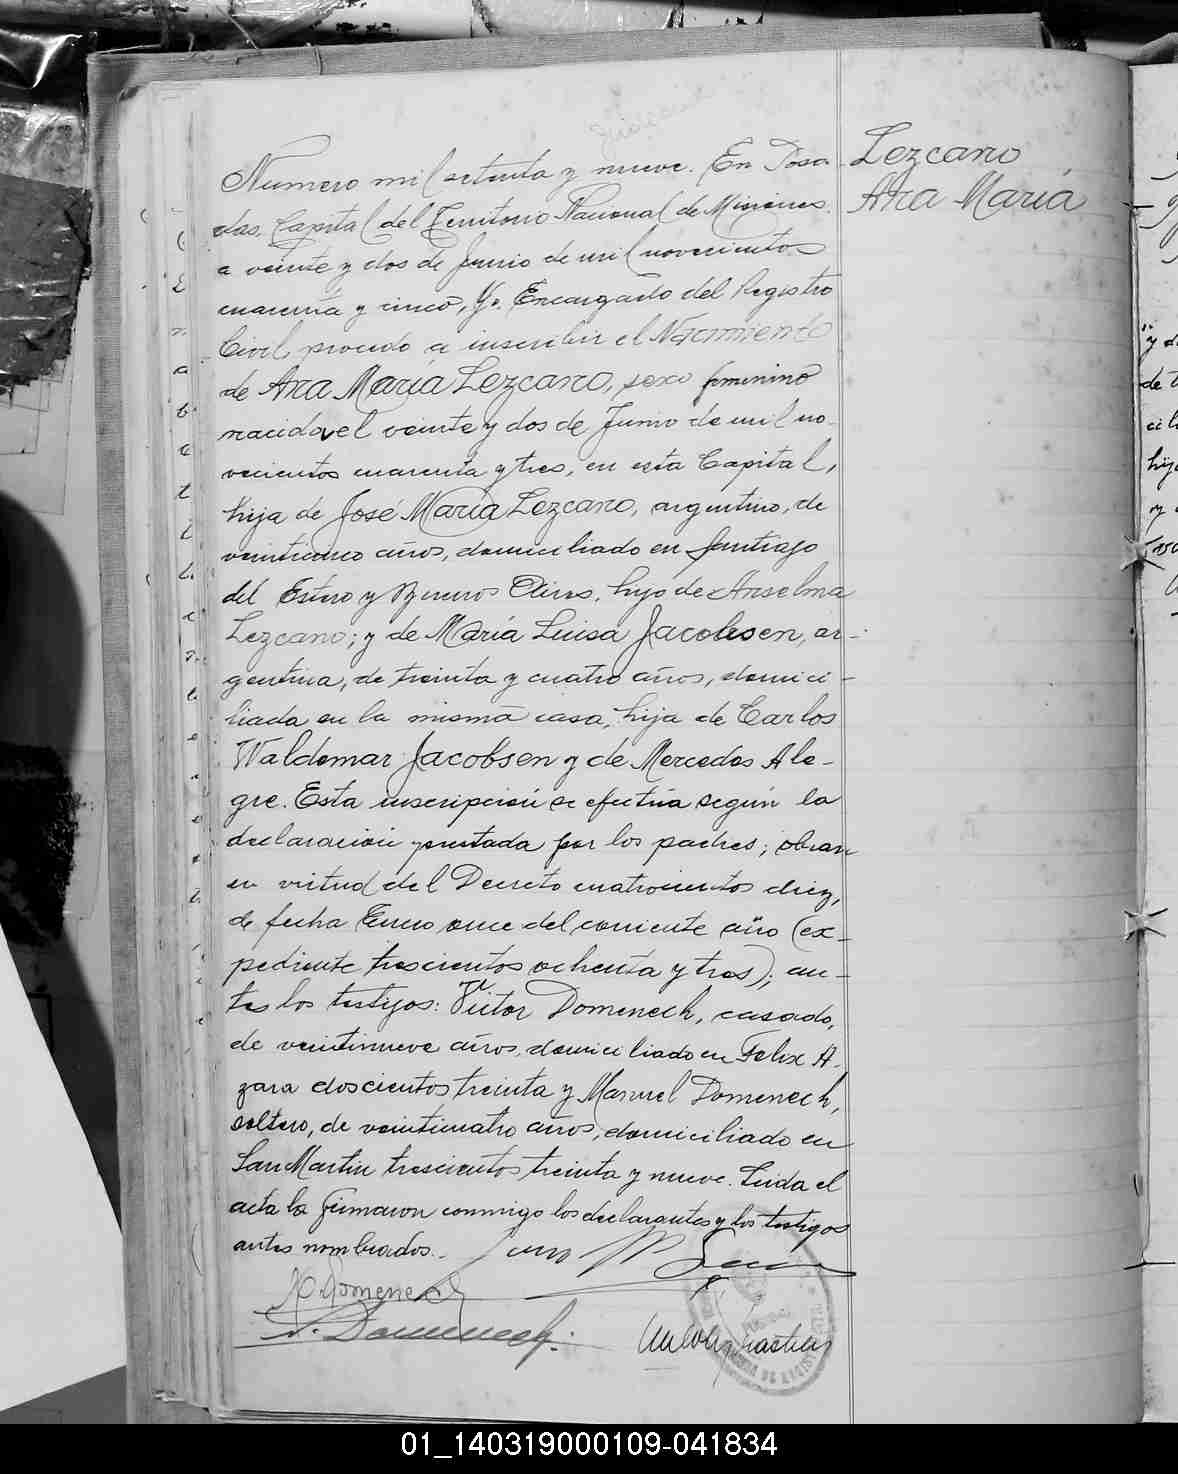 Numero mil setenta y nueve. En Posa-
das, Capital del Territorio Nacional de Misiones
a veinte y dos de Junio de mil novecientos
cuarenta y cinco, Yo. Encargado del Registro
Civil procedo a inscribir el Nacimiento
de Ana María Lezcano, sexo femenino
nacida el veinte y dos de Junio de mil no-
vecientos cuarenta y tres, en esta Capital,
hija de José María Lezcano, argentino, de
años, domiciliado en Santiago
del Estero y Buenos Aires, hijo de Anselma
Lezcano; y de María Luisa Jacobsen, ar-
gentina, de treinta y cuatro años, domici-
liada en la misma casa, hija de Carlos
Waldemar Jacobsen y de Mercedes Ale-
gre. Esta inscripción se efectúa según la
declaración prestada por los padres; obran
en virtud del Decreto cuatrocientos diez,
de fecha Enero once del corriente año (ex-
pediente trescientos ochenta y tres); an-
tes los testigos: Victor Domenech, casado,
de veintinueve años, domiciliado en Felix A-
zara doscientos treinta y Manuel Domenech,
soltero, de veinticuatro años, domiciliado en
San Martin trescientos treinta y nueve. Leida el
acta la firmaron conmigo los declarantes y los testigos
antes nombrados.
Domenech
Domenech
Lezcano
Ana María
01_140319000109-041834